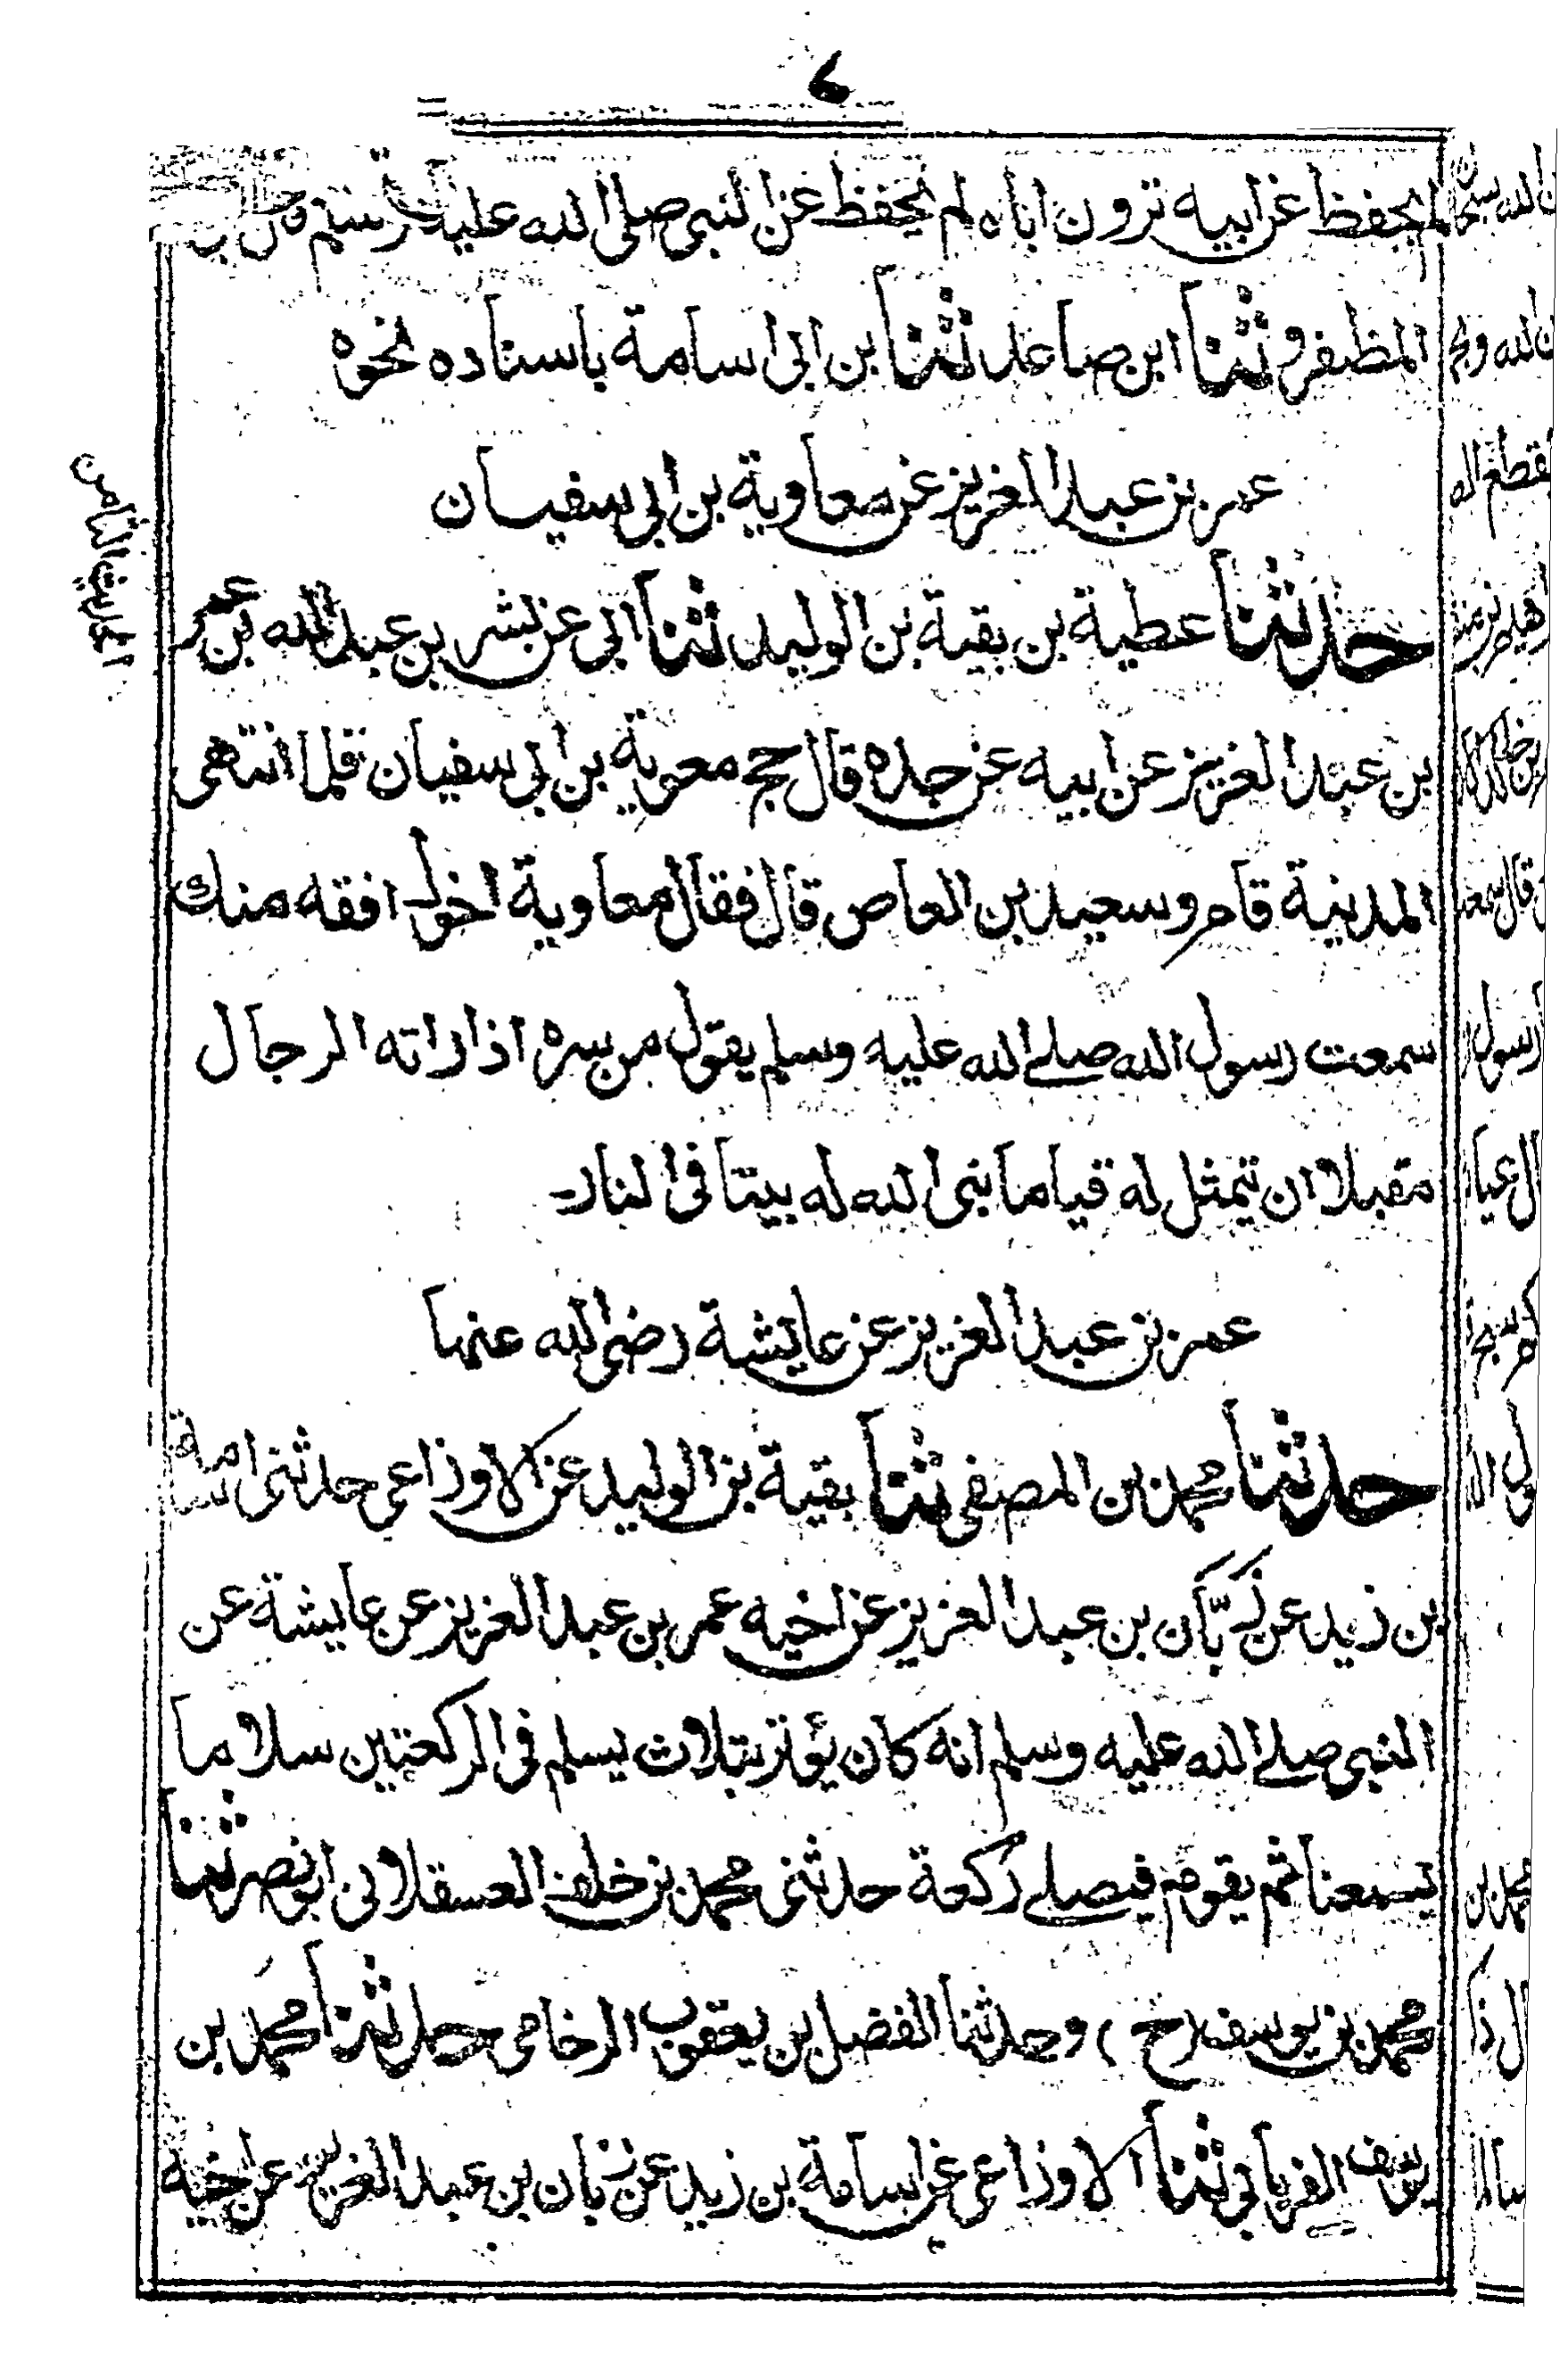 لم يحفظ عن ابيه ترون اباه لم يحفظ عن النبي صلى الله عليه وسلم
المظفر و ثنا ابن صاعد ثنا بن ابى اسامة باسناده نحوه
عمر بن عبد العزيز عن معاوية بن ابى سفيان
حدثنا عطية بن بقية بن الوليد ثنا ابى عن بشر بن عبد الله بن عمر
بن عبد العزيز عن ابيه عن جده قال حج معوية بن ابى سفيان فلما انتهى
المدينة قام وسعيد بن العاص قال فقال معاوية اخول افقه منك
سمعت رسول الله صلے الله عليه وسلم يقول من سره اذا راته الرجال
مقبلا ان تيمثل له قياما بنى الله له بيتا فى النار
عمر بن عبد العزيز عن عايشة رضى الله عنها
حدثنا محمد بن المصفى ثنا بقية بن الوليد عن الاوزاعى حدثنى اسامة
بن زيد عن زبان بن عبد العزيز عن اخيه عمر بن عبد العزيز عن عايشة عن
النبى صلے الله عليه وسلم انه كان يؤتر بتلاث يسلم فى الركعتين سلاما
يسمعنا ثم يقوم فيصلے ركعة حدثنى محمد بن خلف العسقلانى ابو نصر ثنا
محمد بن يوسف (ح) وحدثنا الفضل بن يعقوب الرخامى حدثنا محمد بن
يوسف الفريابى ثنا الاوزاعى عن اسامة بن زيد عن زبان بن عبد العزيز عن اخيه
الحديث الثامن